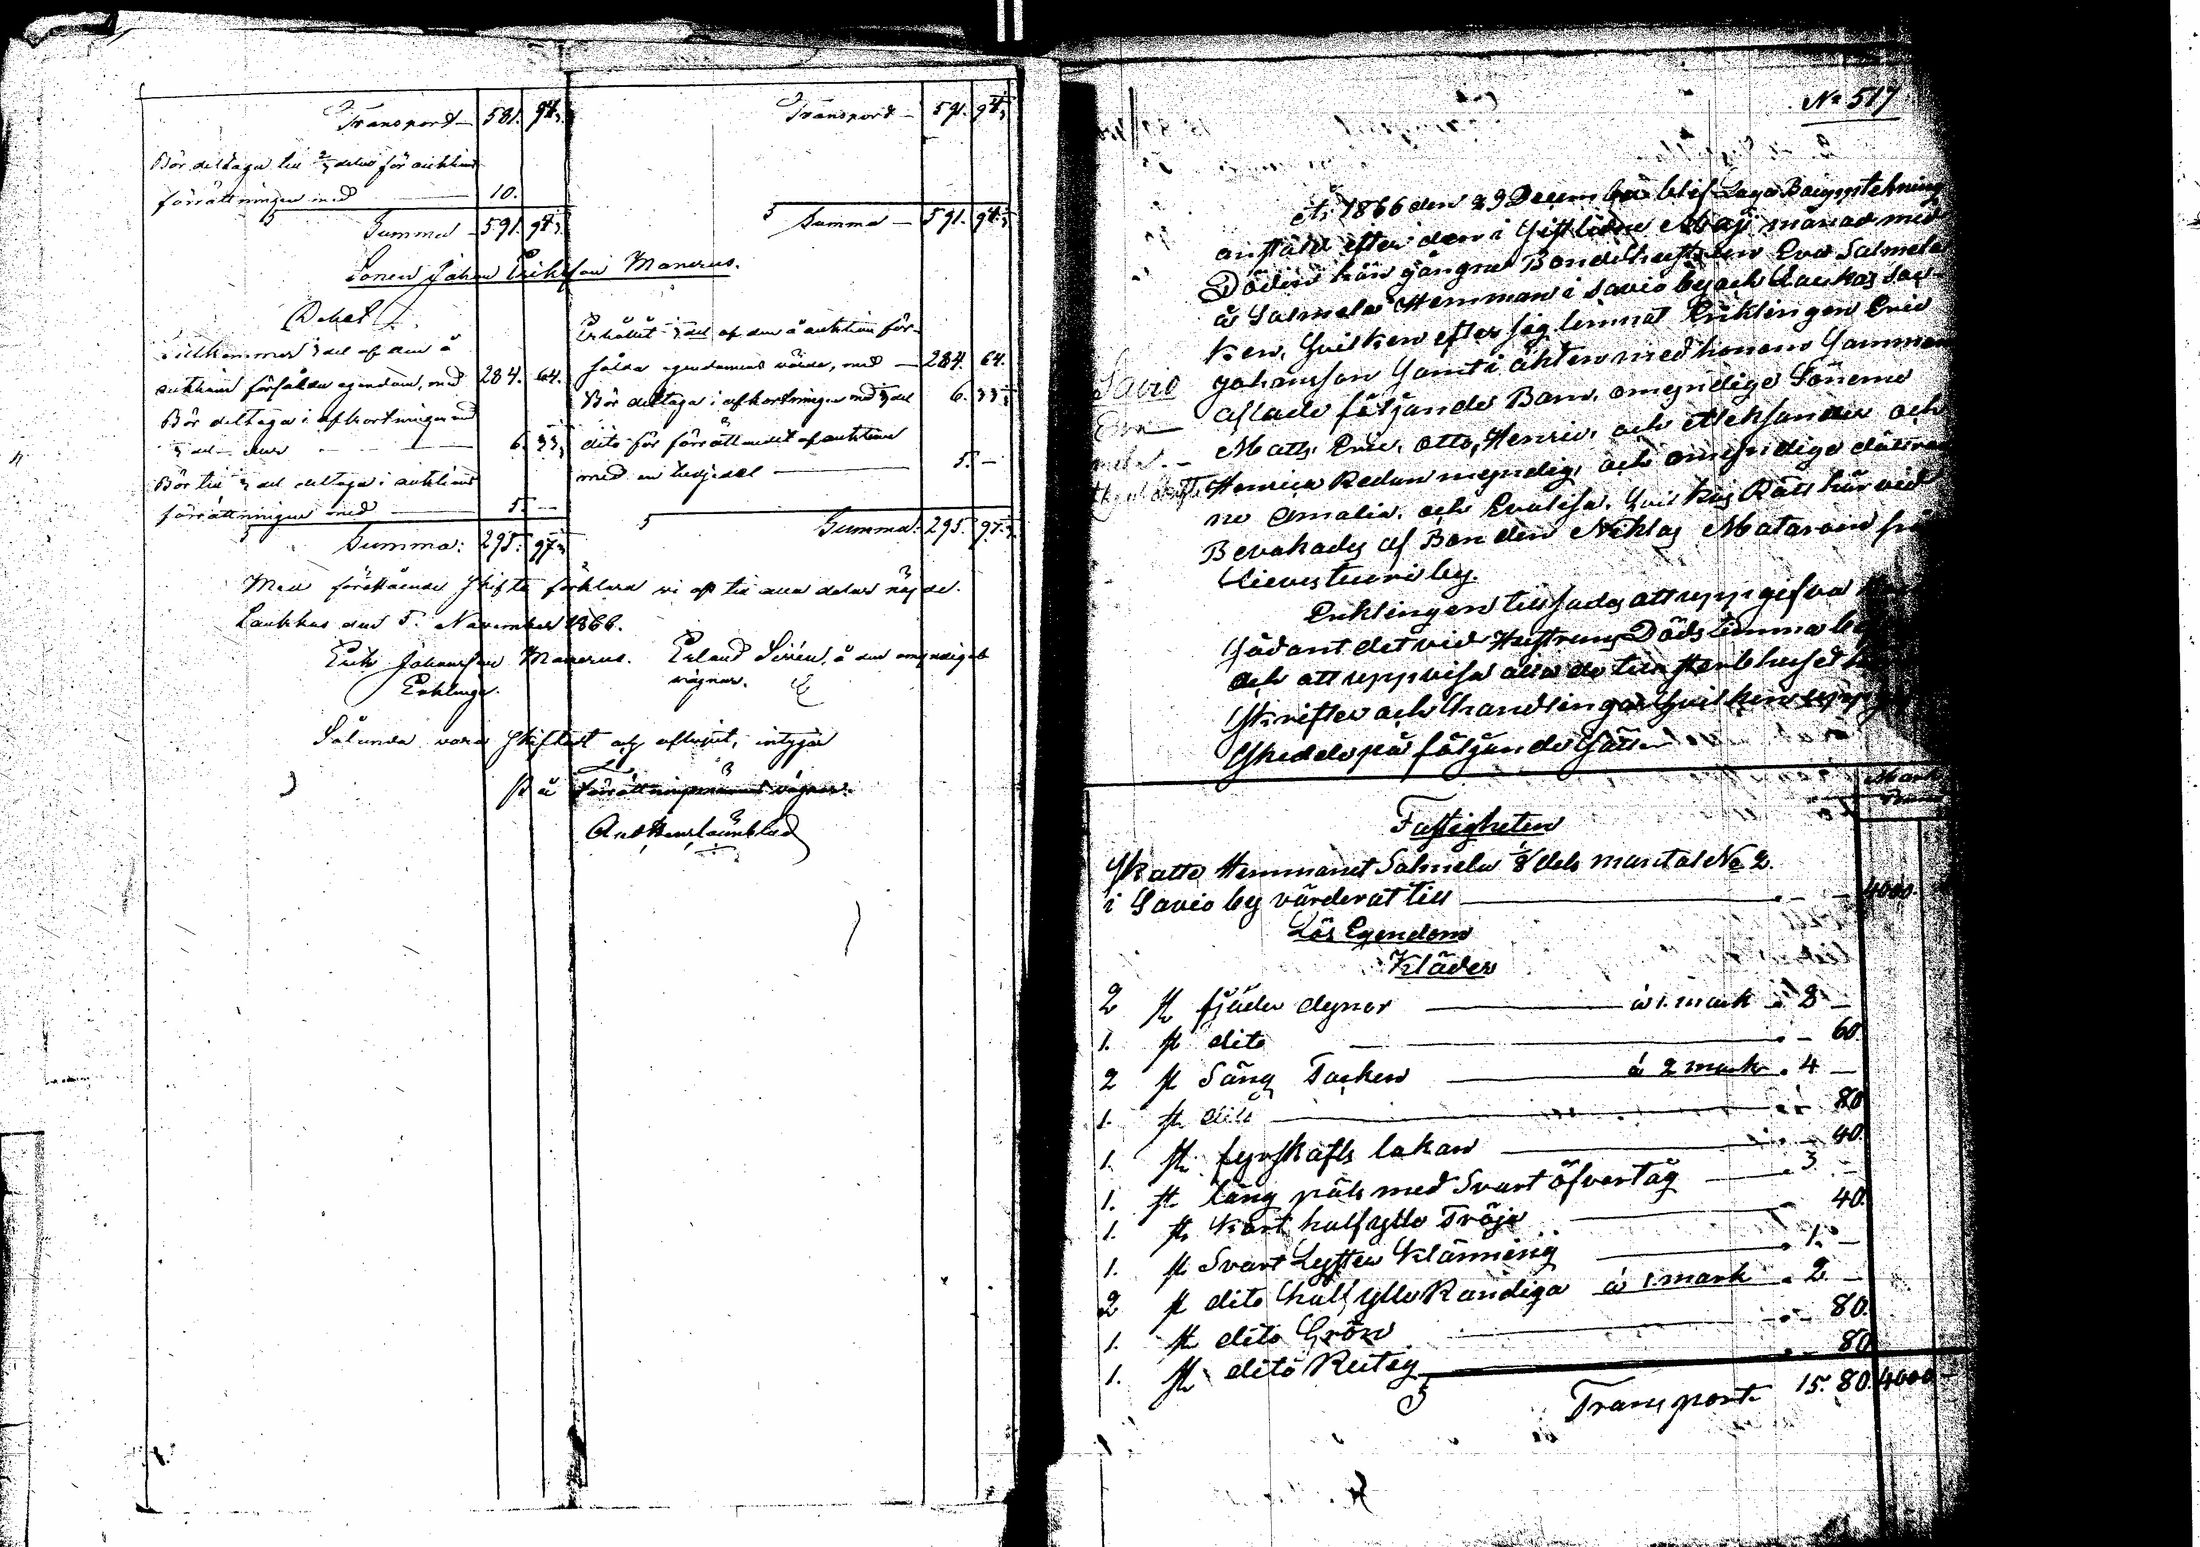 Transport 581. 94⅔
Bör deltaga till ⅔ delar för auktions
förrättningen med 10.
Summa 591. 94⅔
Transport 591. 94⅔
Summa 591. 94⅔
Sonen Johan Eriksson Manerus.
Debet
Tillkommer ⅓ del af den å
auktion försålda egendom, med 284. 64.
Bör deltaga i afkortningen med
⅓ del 6. 33⅓
Bör till ⅓ del deltaga i auktions
förrättningen med 5. —
Summa: 295. 97⅓
Erhållit ⅓ del af den å auktion för-
sålda egendomens värde, med 284. 64
Bör deltaga i afkortningen med ⅓ del 6. 33⅓
dito för förrättandet af auktion
med en tredjedel 5. —
Summa: 295. 97⅓
Med förestående skifte förklara vi oss till alla delar nöjde.
Laukkas den 5. November 1866.
Erik Johansson Manerus. Erland Sirén, å den omyndigas
Enklinge. vägnar.
Sålunda vara skiftadt och aflupit, intygar
På förrättningsmännens vägnar:
And
No 517
År 1866 den 29 December blef Laga Bouppteckning
anställd efter den i sistlidne Maji månad med
Döden hän gångne Bondehustrun Eva Salmela
å Salmela Hemman i Savio by och Laukas Soc-
ken, hvilken efter sig lemnat Enklingen Eric
Johansson samt i äkten med honom Samman
aflade följande Barn, omyndige Sönerne
Matts, Eric, Otto, Henric, och Aleksander och
Henrica Redan myndig, och omyndiga döttrar
ne Amalia, och Evalisa, hvilkas Rätt här vid
Bevakades af Bonden Niklas Mataron från
Lievestuori by.
Savio
Eva
Enklingen tillsades att uppgifva
Sådant det vid Hustruns Dödstimma be
och att uppvisa alla de till sterbhuset
Skrifter och handlingar hvilken
Skedde på följande Sätt
Mark
Fastigheten
Skatte Hemmanet Salmela ⅛ dels mantal No 2.
i Savio by värderat till 4000.
Lös Egendom
Kläder
2 st fjäder dynor à 1. mark 2 —
1. st dito 60
2 st Säng Täcken à 2 mark 4 —
1. st dito 80
1. st fyrskafts lakan 40
1. st lång päls med Svart öfvertåg 3 —
1. st kort halfylle Tröja 40.
1. st Svart Lyster Klänning 1. —
2 st dito halfylle Randiga à 1 mark 2 —
1. st dito Grön 80.
1. st dito Rutig 80
Transport 15. 80. 4000 —